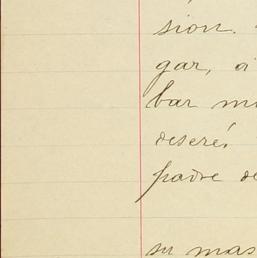 sion.
gar, a
bar mi
deseré.
padre de
su mas